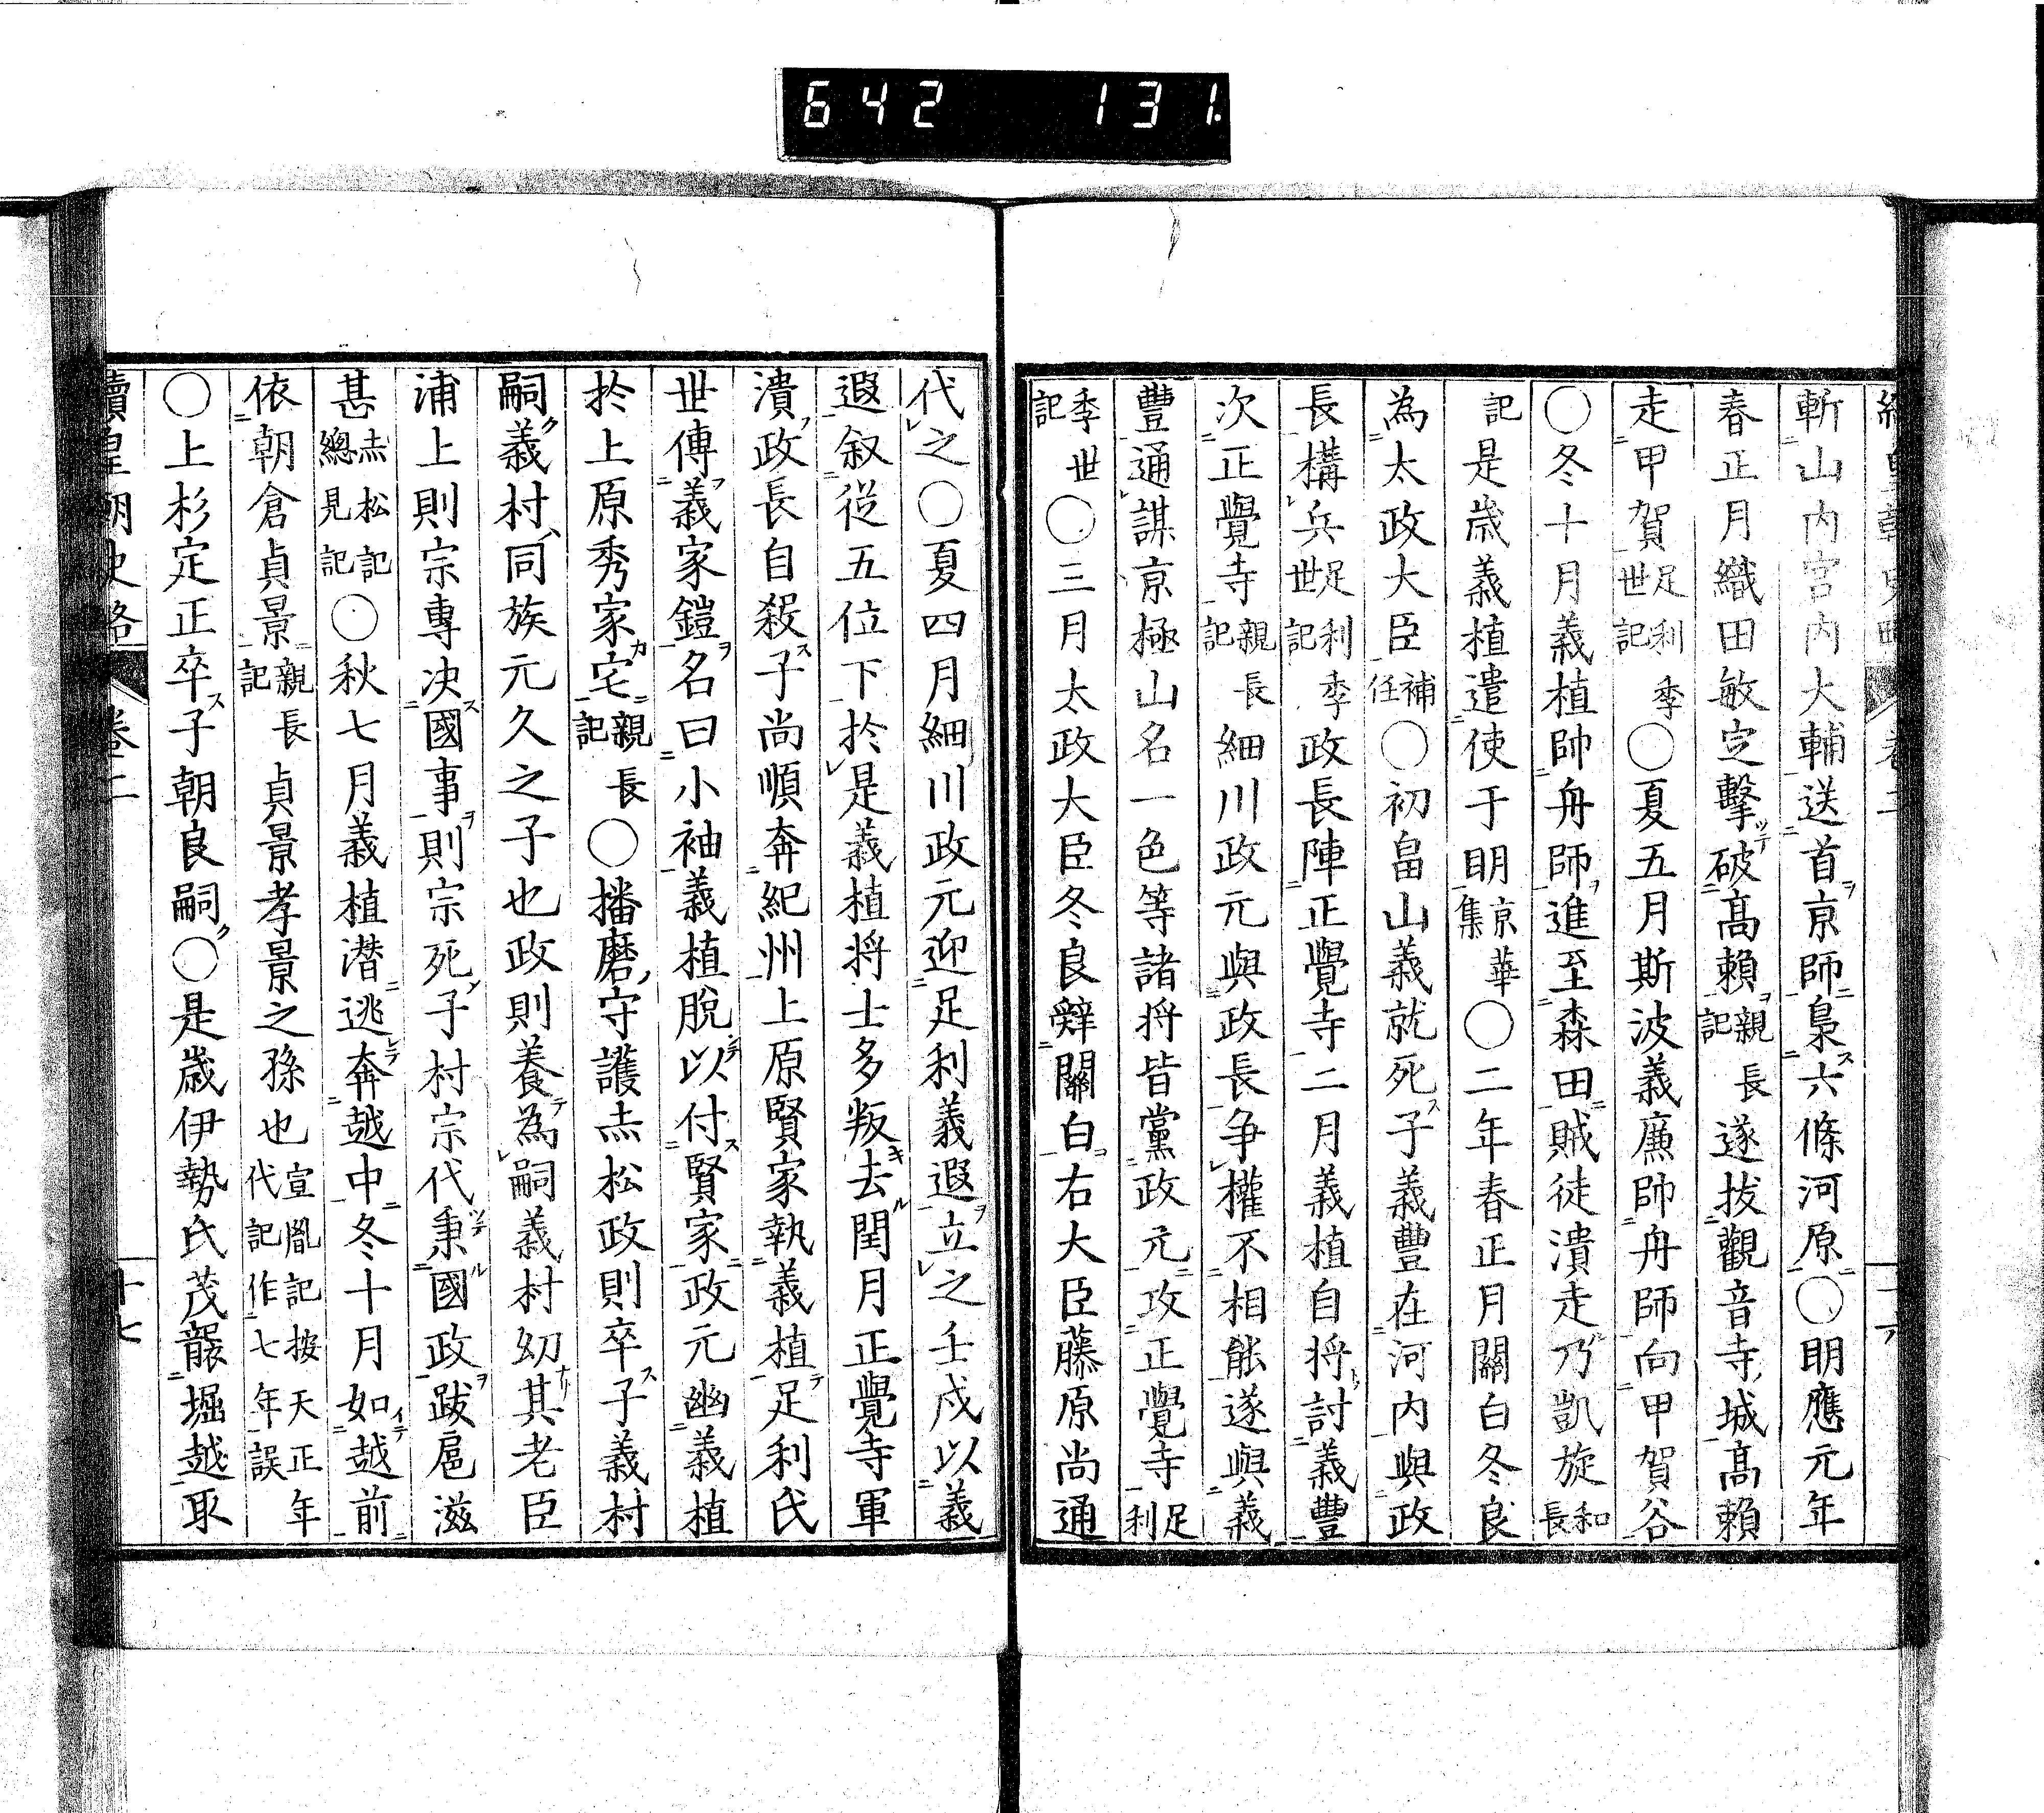 642 131.
續皇朝史略 卷二 十六
斬山内宮内大輔送首京師梟六條河原〇明應元年
春正月織田敏定擊破髙賴親長記遂拔觀音寺城髙賴
走甲賀足利季世記〇夏五月斯波義廉帥舟師向甲賀谷
〇冬十月義植帥舟師進至森田賊徒潰走乃凱旋和長
記是歳義植遣使于明京華集〇二年春正月關白冬良
為太政大臣補任〇初畠山義就死子義豐在河内與政
長構兵足利季世記政長陣正覺寺二月義植自將討義豐
次正覺寺親長記細川政元與政長争權不相能遂與義
豐通謀京極山名一色等諸將皆黨政元攻正覺寺足利
季世記〇三月太政大臣冬良辤關白右大臣藤原尚通
代之〇夏四月細川政元迎足利義遐立之壬戌以義
遐叙從五位下於是義植将士多叛去閏月正覺寺軍
潰政長自殺子尚順奔紀州上原賢家執義植足利氏
世傳義家鎧名曰小袖義植脫以付賢家政元幽義植
於上原秀家宅親長記〇播磨守護赤松政則卒子義村
嗣義村同族元久之子也政則養為嗣義村幼其老臣
浦上則宗專决國事則宗死子村宗代秉國政跋扈滋
甚赤松記總見記〇秋七月義植潛逃奔越中冬十月如越前
依朝倉貞景親長記貞景孝景之孫也宣胤記按天正年代記作七年誤
〇上杉定正卒子朝良嗣〇是歳伊勢氏茂襲堀越取
續皇朝史略 卷二 十七